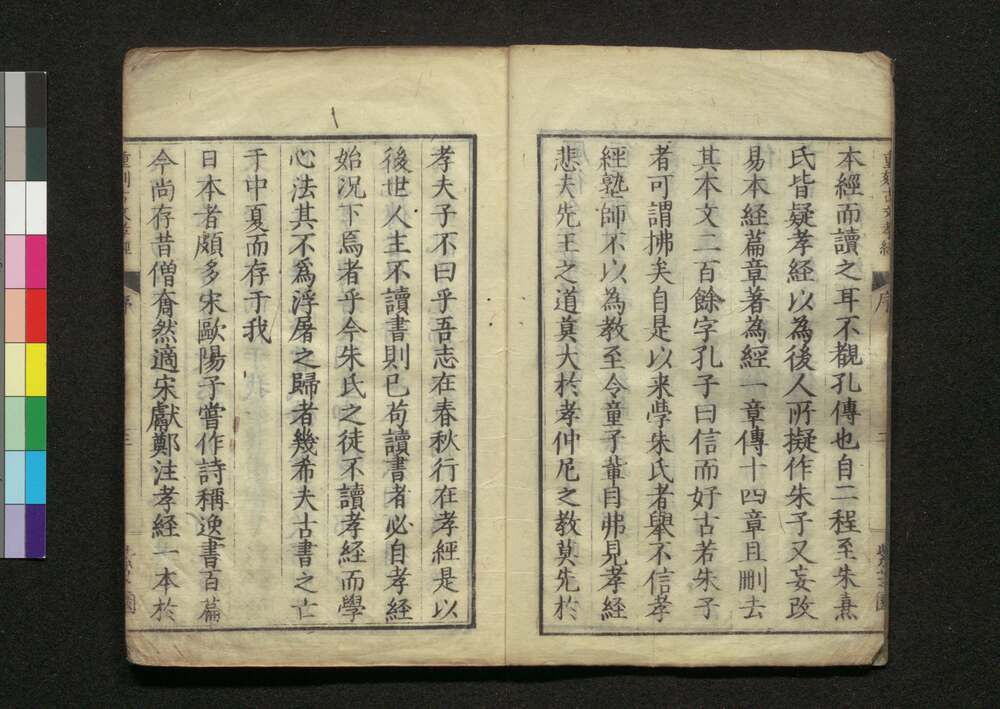 本經而讀之耳不觀孔傳也自二程至朱熹
氏皆疑孝經以為後人所擬作朱子又妄改
易本經篇章著為經一章傳十四章且刪去
其本文二百餘字孔子曰信而好古若朱子
者可謂拂矣自是以来學朱氏者舉不信孝
經塾師不以為教至令童子軰目弗見孝經
悲夫先王之道莫大於孝仲尼之教莫先於
孝夫子不曰乎吾志在春秋行在孝經是以
後世人主不讀書則已苟讀書者必自孝經
始況下焉者乎今朱氏之徒不讀孝經而學
心法其不爲浮屠之歸者幾希夫古書之亡
于中夏而存于我
日本者頗多宋歐陽子嘗作詩稱逸書百篇
今尚存昔僧奝然適宋獻鄭注孝經一本於
序
三